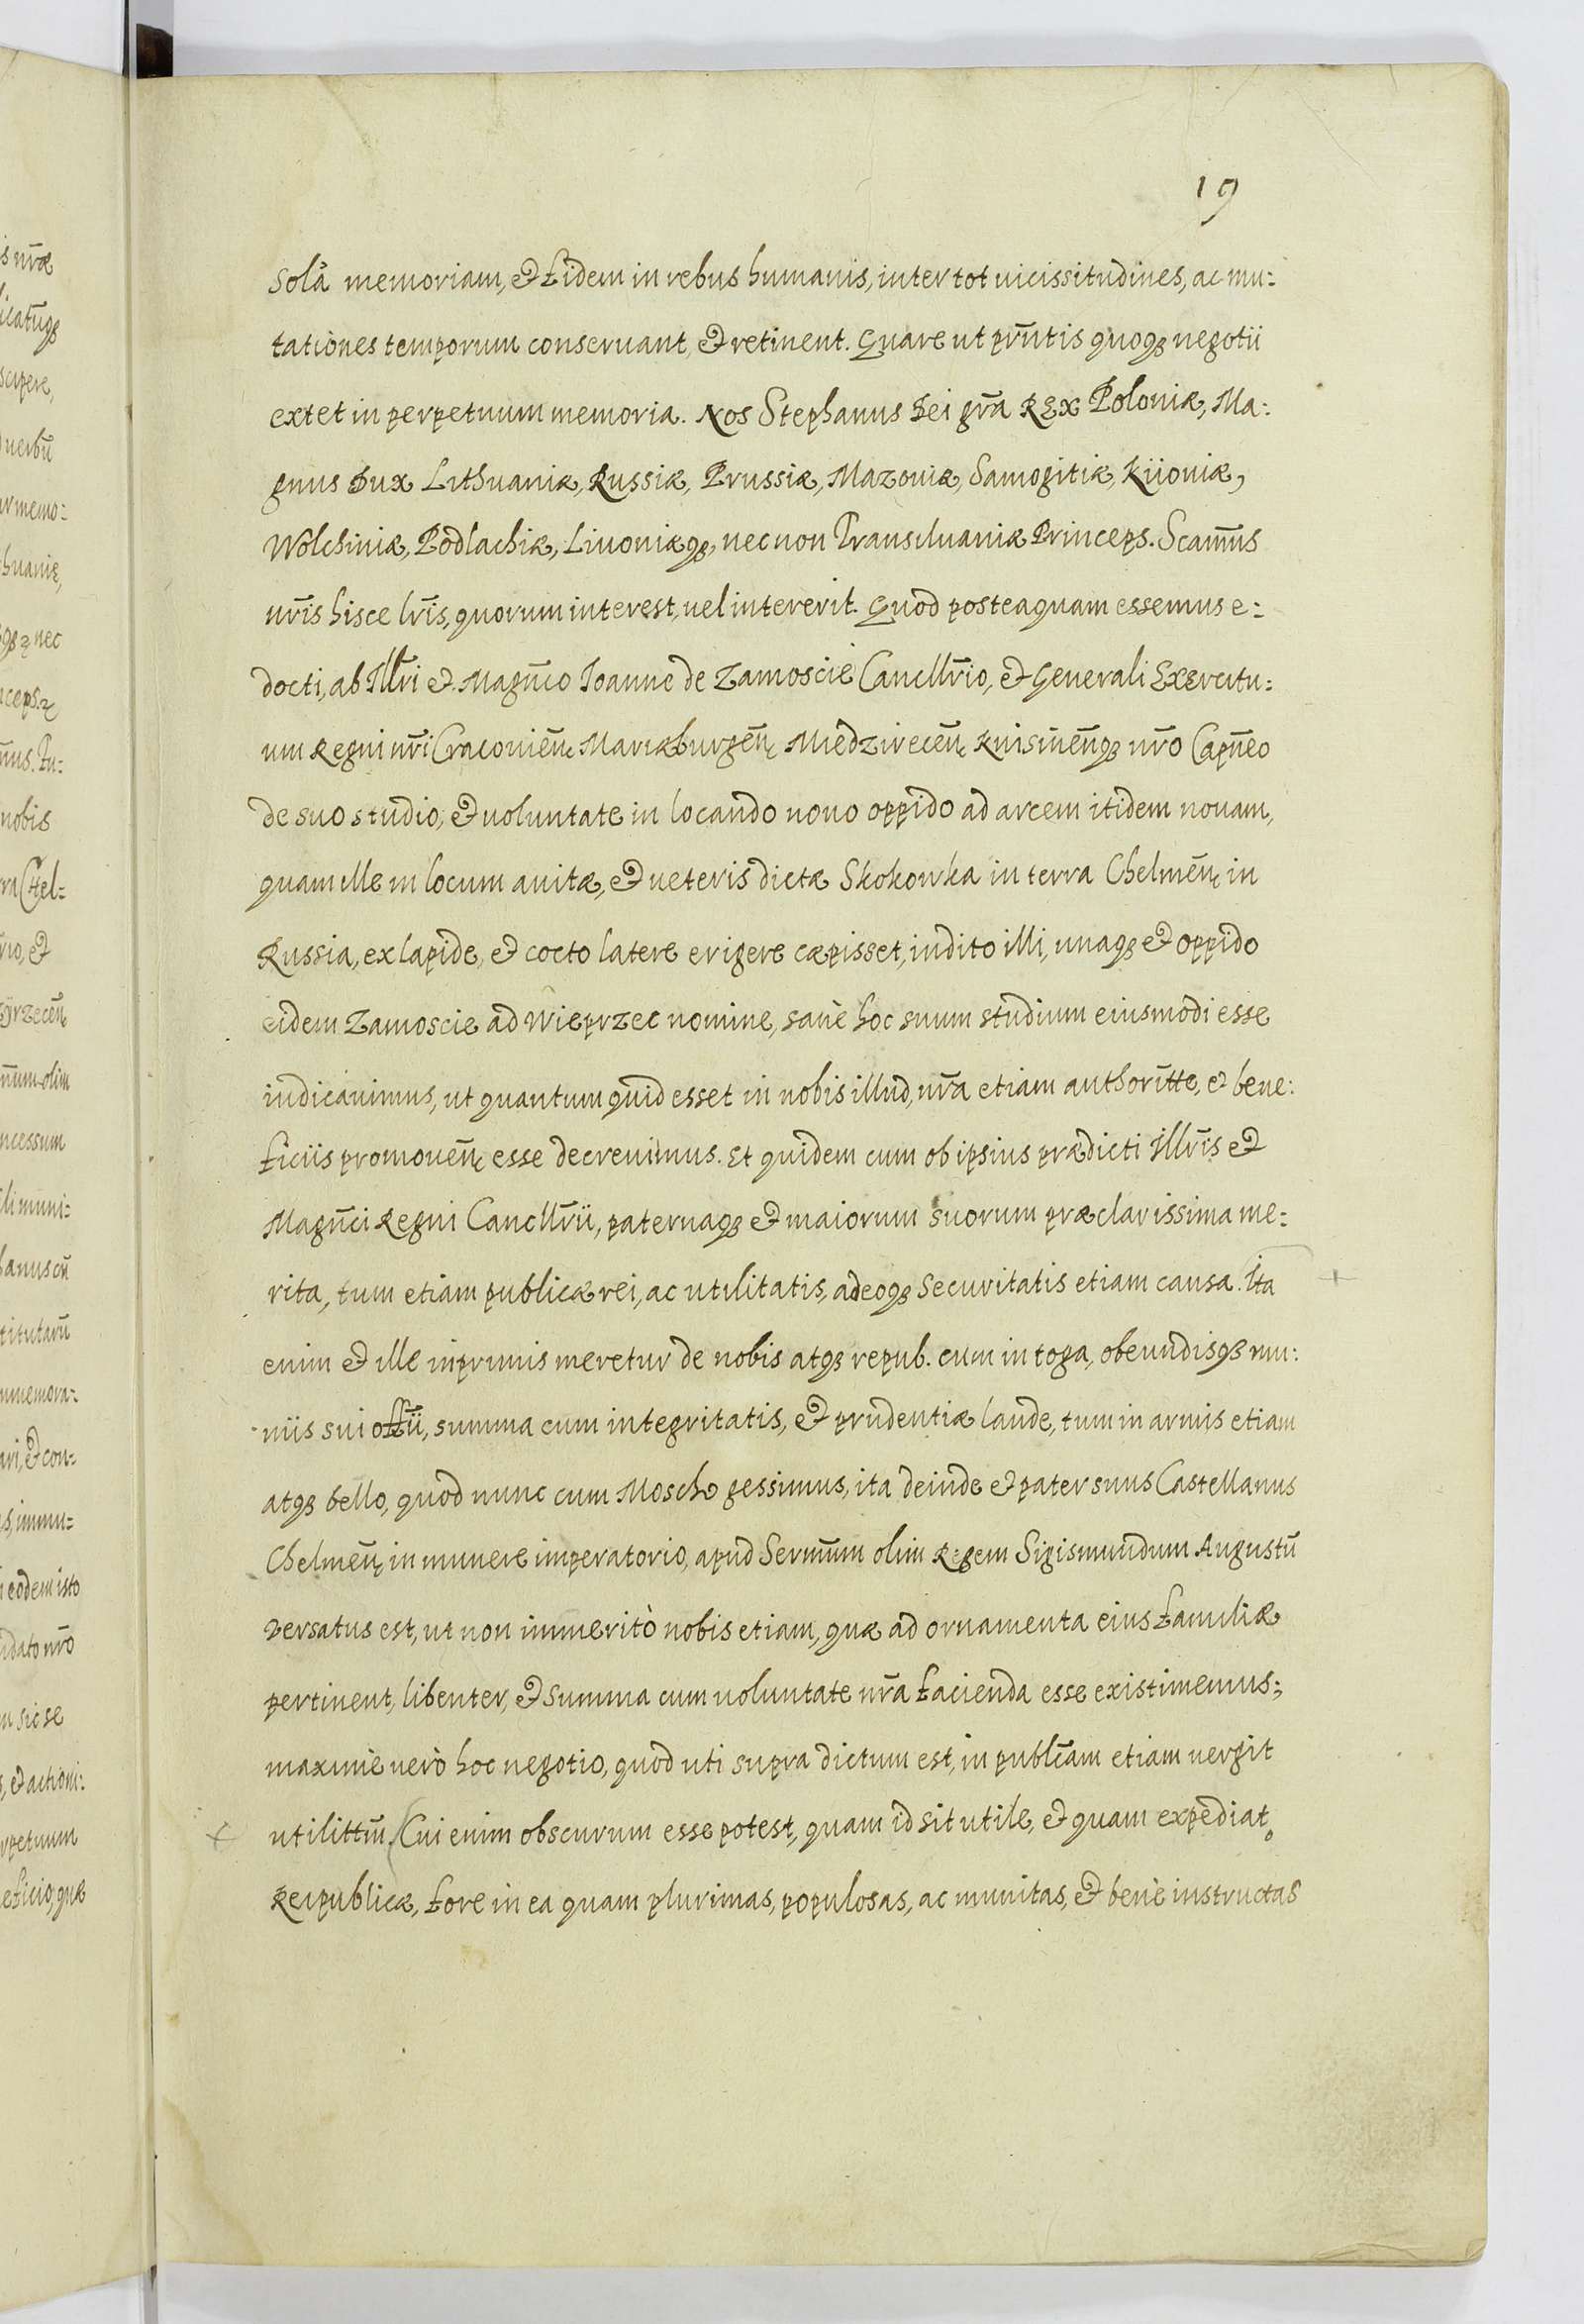 19
Sola memoriam, et fidem in rebus humanis, inter tot uicissitudines, ac mu:
tationes temporum conseruant, et retinent. Quare ut prñtis quoqȝ negotii
extet in perpetuum memoria. Nos Stephanus Dei gr̃a REX Poloniæ, Ma:
gnus Dux Lithuaniæ, Russiæ, Prussiæ, Mazouiæ, Samogitiæ, Kiiouiæ,
Wolchiniæ, Podlachiæ, Liuoniæqȝ, nec non Transiluaniæ Princeps. Scam̃us
nr̃is hisce lr̃is, quorum interest, uel intererit. Quod posteaquam essemus e:
docti, ab Illr̃i et Magñco Ioanne de Zamoscie Cancllr̃io, et Generali Exercitu:
um Regni nr̃i Cracouieñ, Mariæburgeñ, Miedzireceñ, Knisineñqȝ nr̃o Capñeo
de suo studio, et uoluntate in locando nouo oppido ad arcem itidem nouam,
quam ille in locum auitæ, et ueteris dictæ Skokowka in terra Chelmeñ, in
Russia, ex lapide, et cocto latere erigere cæpisset, indito illi, unaqȝ et oppido
eidem Zamoscie ad Wieprzec nomine, sanè hoc suum studium eiusmodi esse
iudicauimus, ut quantum quid esset in nobis illud, nr̃a etiam authorit̃te, et bene:
ficiis promoueñ, esse decreuimus. Et quidem cum ob ipsius prædicti Illr̃is et
Magñci Regni Cancllr̃ii, paternaqȝ et maiorum suorum præclarissima me:
rita, tum etiam publicæ rei, ac utilitatis, adeoqȝ Securitatis etiam causa. Ita
enim et ille inprimis meretur de nobis atqȝ repub. cum in toga, obeundisqȝ mu:
niis sui offi̅i, summa cum integritatis, et prudentiæ laude, tum in armis etiam
atqȝ bello, quod nunc cum Moscho gessimus, ita deinde et pater suus Castellanus
Chelmeñ, in munere imperatorio, apud Serm̃um olim Regem Sigismundum Augustũ
versatus est, ut non immeritò nobis etiam, quæ ad ornamenta eius familiæ
pertinent, libenter, et summa cum uoluntate nr̃a facienda esse existimemus;
maximè uerò hoc negotio, quod uti supra dictum est, in publc̃am etiam uergit
utilitt̃m. Cui enim obscurum esse potest, quam id sit utile, et quam expediat
Reipublicæ, fore in ea quam plurimas, populosas, ac munitas, et benè instructas